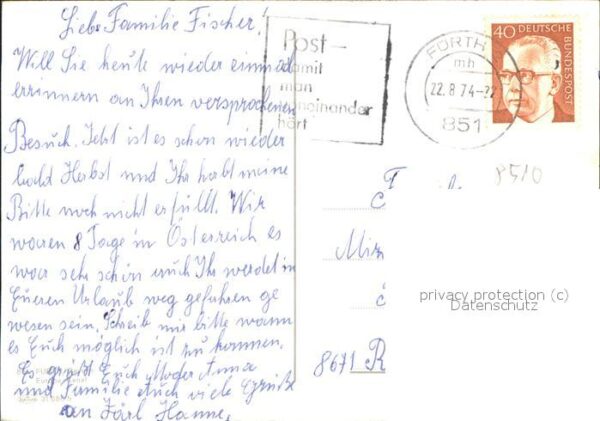 Liebe Familie Fischer!
Will Sie heute wieder einmal
errinnern an Ihren versprochenen
Besuch. Jetzt ist es schon wieder
bald Herbst und Ihr habt meine
Bitte noch nicht erfüllt. Wir
waren 8 Tage in Österreich es
war sehr schön auch Ihr werdet in
Eueren Urlaub weg gefahren ge
wesen sein. Schreib mir bitte wann
es Euch möglich ist zu kommen.
Es grüßt Euch
und Familie Auch viele Grüße
an
Post-
damit
man
voneinander
hört
FÜRTH
mb
22.8.74-22
851
40 DEUTSCHE
BUNDESPOST
8510
8671 R
privacy protection (c)
Datenschutz